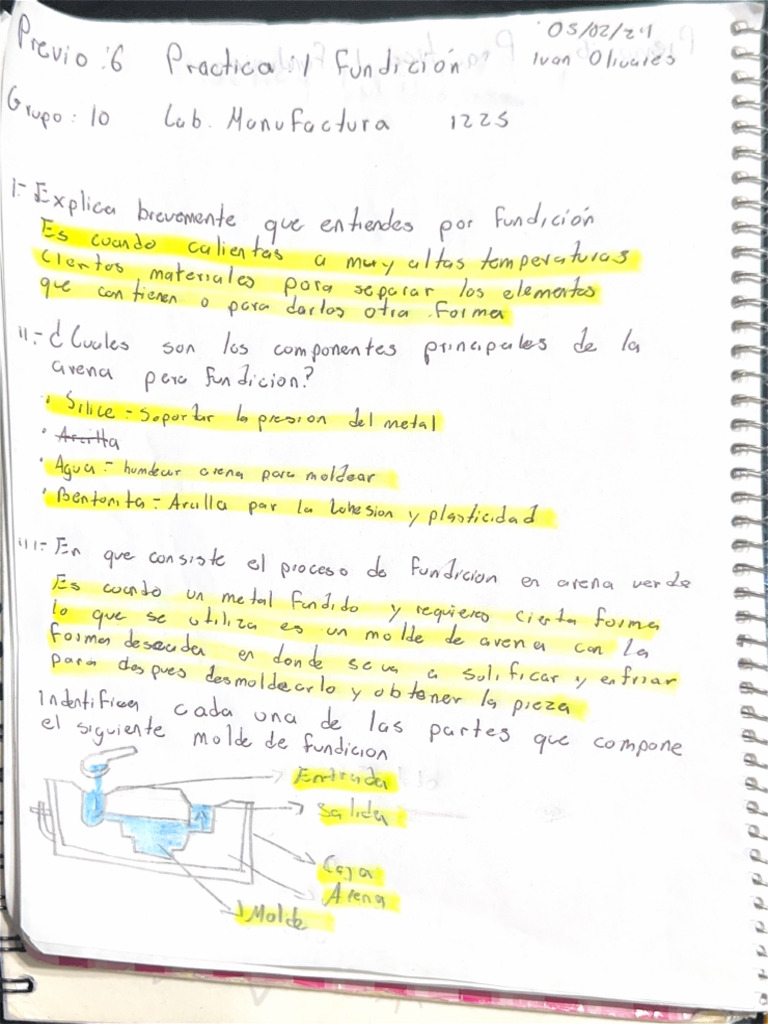 05/02/24
Previo :6 Practica :1 Fundición Ivan Olivales
Grupo: 10 Lab. Manufactura 1225
I.- Explica brevemente que entiendes por fundición
Es cuando calientas a muy altas temperaturas
ciertos materiales para separar los elementos
que contienen o para darlos otra forma
II.- ¿Cuales son los componentes principales de la
arena para fundicion?
• Silice - Soportar la presion del metal
• Arcilla
• Agua - humdecer arena para moldear
• Bentonita - Arcilla par la Cohesion y plasticidad
III.- En que consiste el proceso de fundicion en arena verde
Es cuando un metal fundido y requieres cierta forma
lo que se utiliza es un molde de arena con la
forma deseada en donde se va a solificar y enfriar
para despues desmoldecarlo y obtener la pieza
Indentifica cada una de las partes que compone
el siguiente molde de fundicion
Entrada
Salida
Caja
Arena
Molde